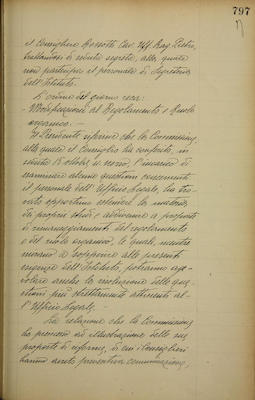 797
il Consigliere Rossotti Cav. Uff. Rag. Pietro,
trattandosi di seduta segreta, alla quale
non partecipa il personale di Segreteria
dell'Istituto.
L'ordine del giorno reca:
Modificazioni al Regolamento e Ruolo
organico. —
Il Presidente informa che la Commissione
alla quale il Consiglio ha conferito, in
seduta 15 ottobre u. scorso, l'incarico di
esaminare alcune questioni concernenti
il personale dell'Ufficio Legale, ha tro-
vato opportuno estendere la materia
dei proprii studi e addivenire a proposte
di rimaneggiamenti del regolamento
e del ruolo organico, le quali, mentre
mirano a sopperire alle presenti
esigenze dell'Istituto, potranno age-
volare anche la risoluzione delle que-
stioni più strettamente attinenti al-
l'Ufficio Legale. —
La relazione che la Commissione
ha premesso ad illustrazione delle sue
proposte di riforma, di cui i Consiglieri
hanno avuto preventiva comunicazione,